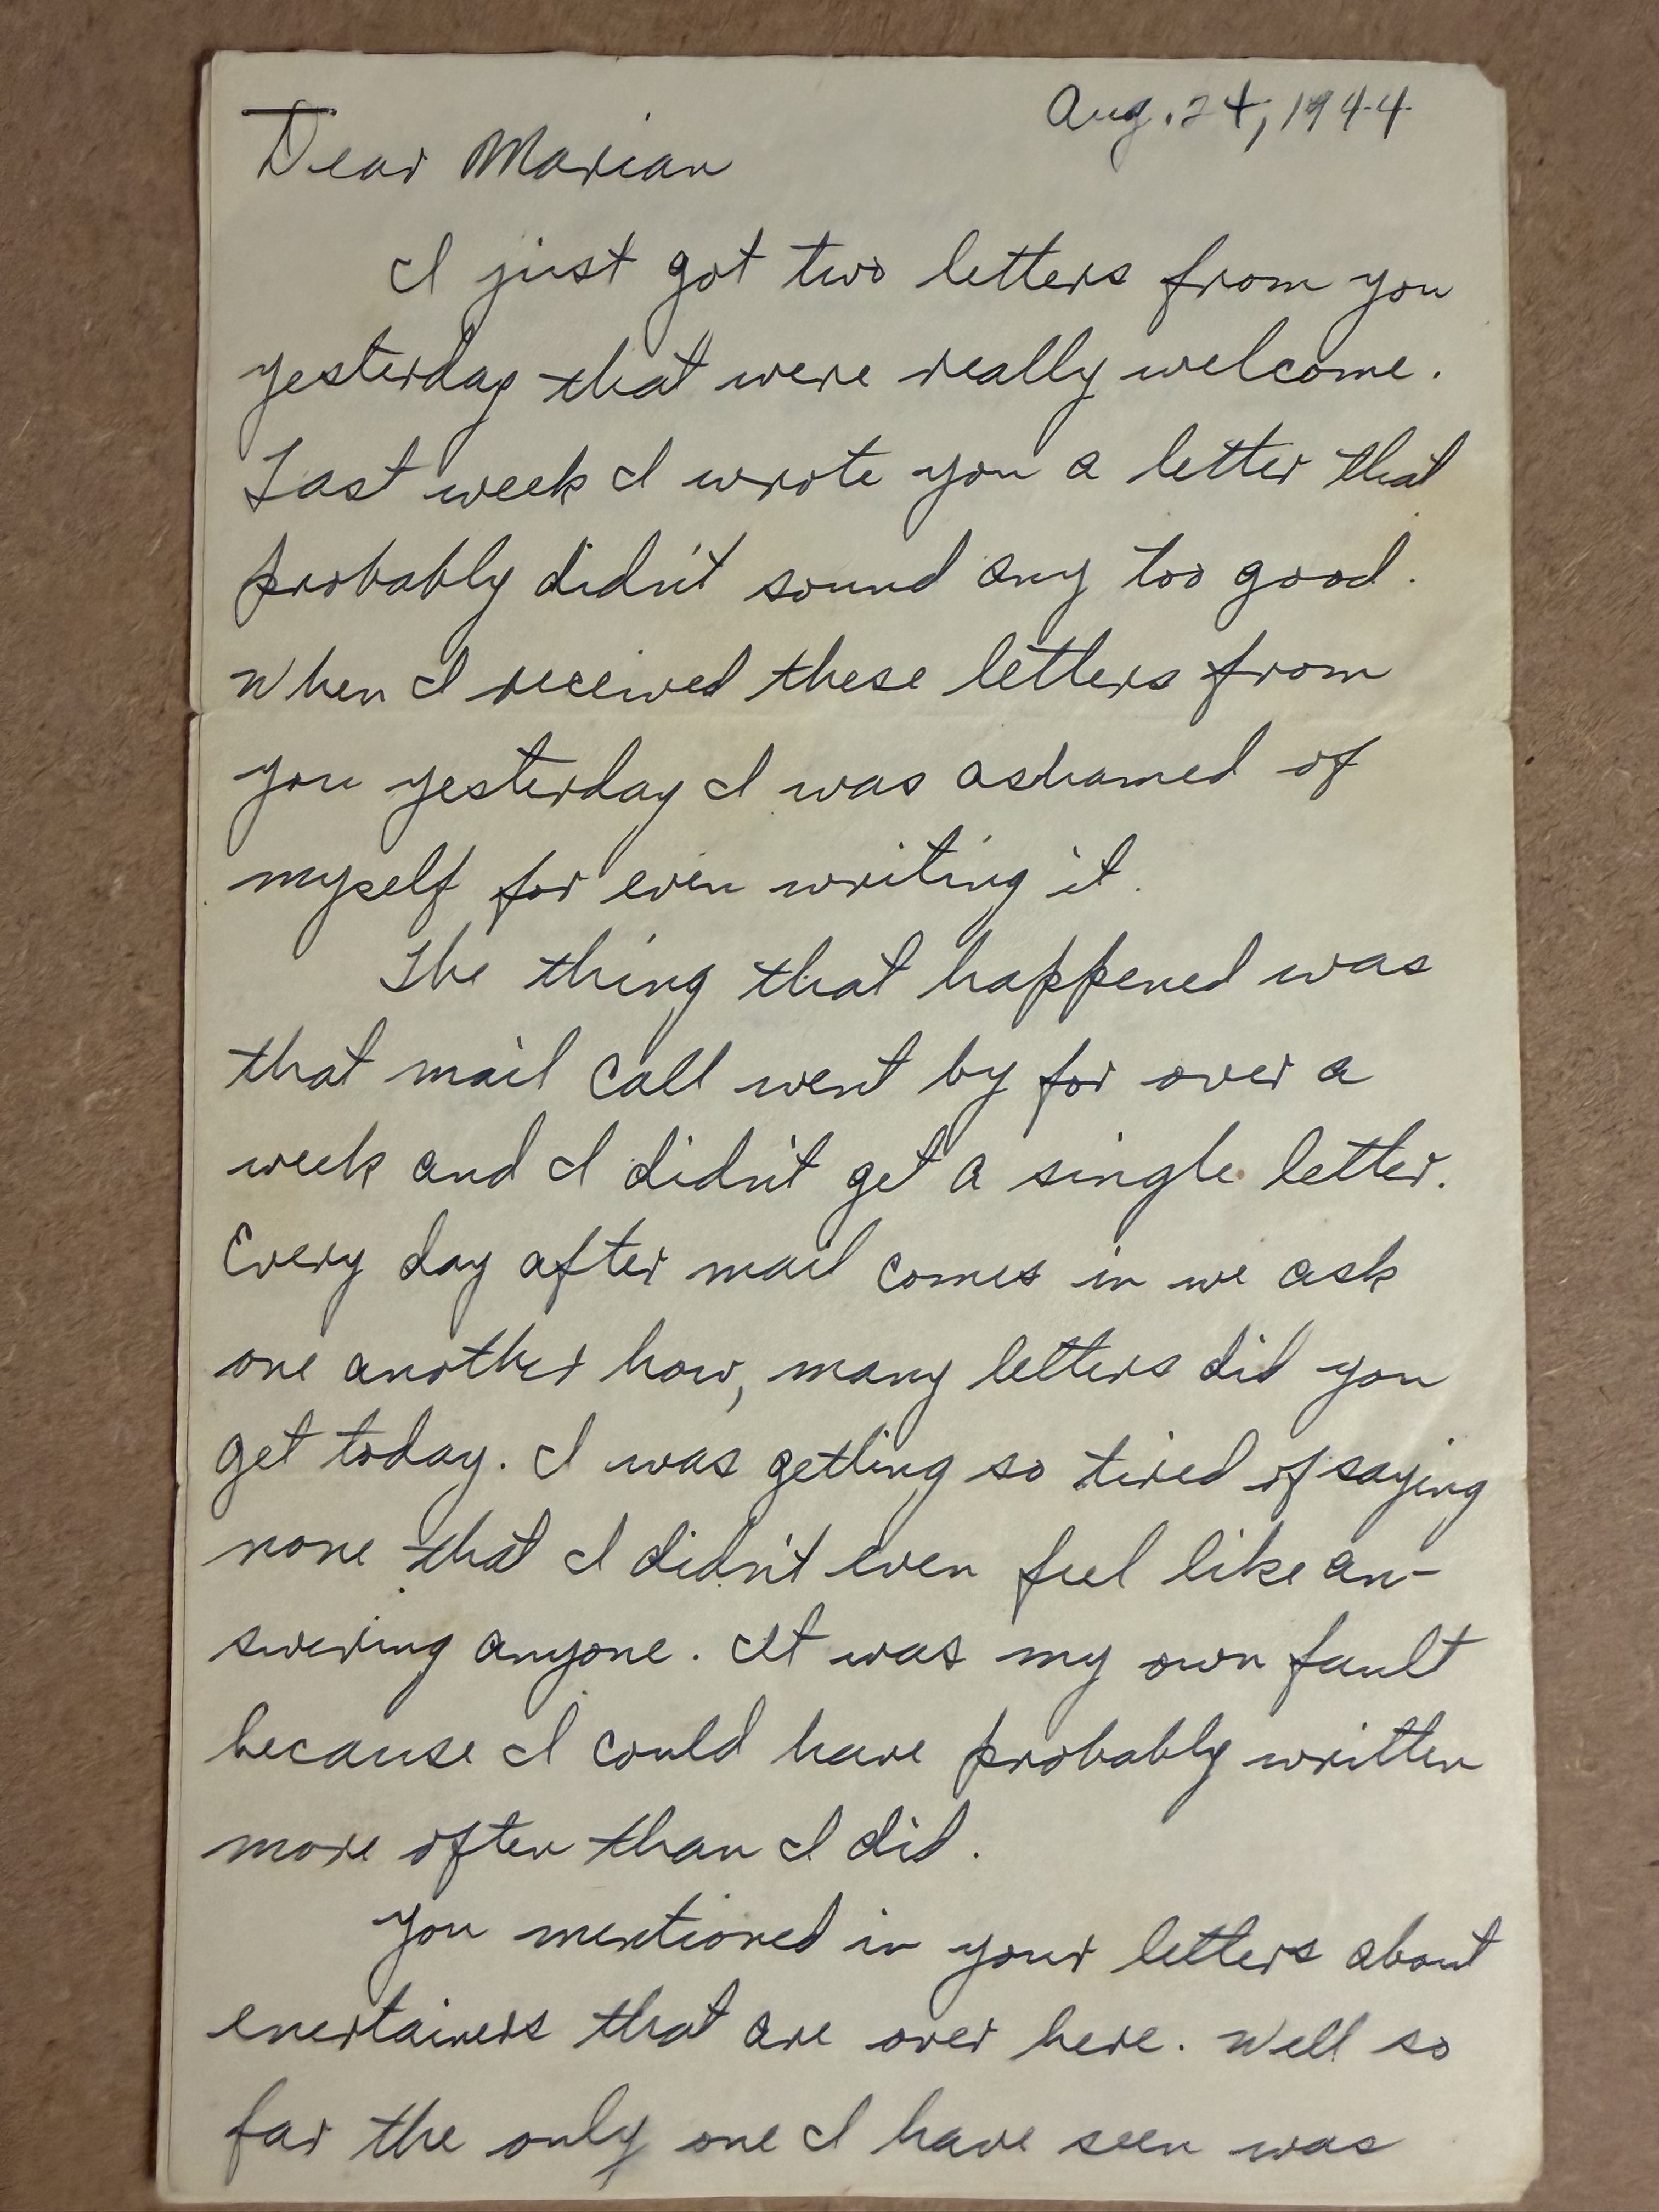 Aug. 24, 1944
Dear Marian
I just got two letters from you
yesterday that were really welcome.
Last week I wrote you a letter that
probably didn't sound any too good.
When I received these letters from
you yesterday I was ashamed of
myself for even writing it.
The thing that happened was
that mail call went by for over a
week and I didn't get a single letter.
Every day after mail comes in we ask
one another how, many letters did you
get today. I was getting so tired of saying
none that I didn't even feel like an-
swering anyone. It was my own fault
because I could have probably written
more often than I did.
You mentioned in your letters about
enertainers that are over here. Well so
far the only one I have seen was